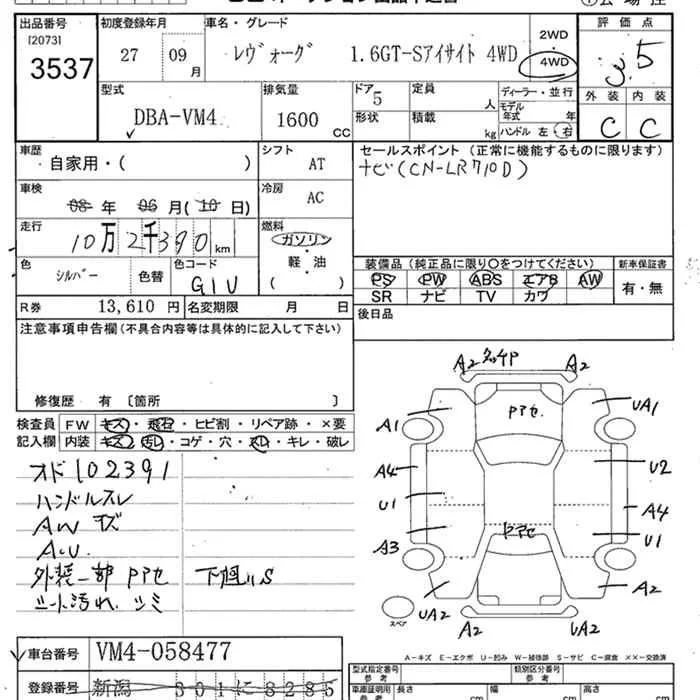 出品番号 初度登録年月 車名・グレード 評価点
[2073] 2WD
3537 27 09月 レヴォーグ 1.6GT-Sアイサイト 4WD 4WD 3.5
外装 内装
型式 排気量 ドア 5 定員 人 ディーラー・並行
DBA-VM4 1600 CC 形状 積載 kg モデル年式 年
ハンドル 左・右 C C
車歴 シフト セールスポイント (正常に機能するものに限ります)
自家用・( ) AT ナビ(CN-LR710D)
車検 冷房
08年 06月(10日) AC
走行 燃料
10万2千390km ガソリン
軽・油
( )
色 色コード 装備品 (純正品に限り〇をつけてください) 新車保証書
シルバー 色替 G1U PS PW ABS エアB AW 有・無
SR ナビ TV カワ
R券 13,610円 名変期限 月 日 後日品
注意事項申告欄(不具合内容等は具体的に記入して下さい)
修復歴 有 〔箇所 〕
検査員 FW キズ・飛石・ヒビ割・リペア跡・×要
記入欄 内装 キズ・汚レ・コゲ・穴・スレ・キレ・破レ
オド102391
ハンドルスレ
AWキズ
外装一部PPセ 下廻りS
シート汚れ、シミ
A2 A2
A1 PPセ UA1
A4 U2
U1 A4
A3 PPセ U1
UA2 A2
スペア A2 UA2
A-キズ E-エクボ U-凹み W-補修跡 S-サビ C-腐食 ××-交換済
車台番号 VM4-058477
登録番号 新潟 301に8285
型式指定番号 参考 類別区分番号 参考
車庫証明用 参考 長さ cm 幅 cm 高さ cm